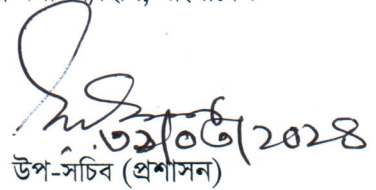 ৩১/০৩/২০২৪
উপ-সচিব (প্রশাসন)